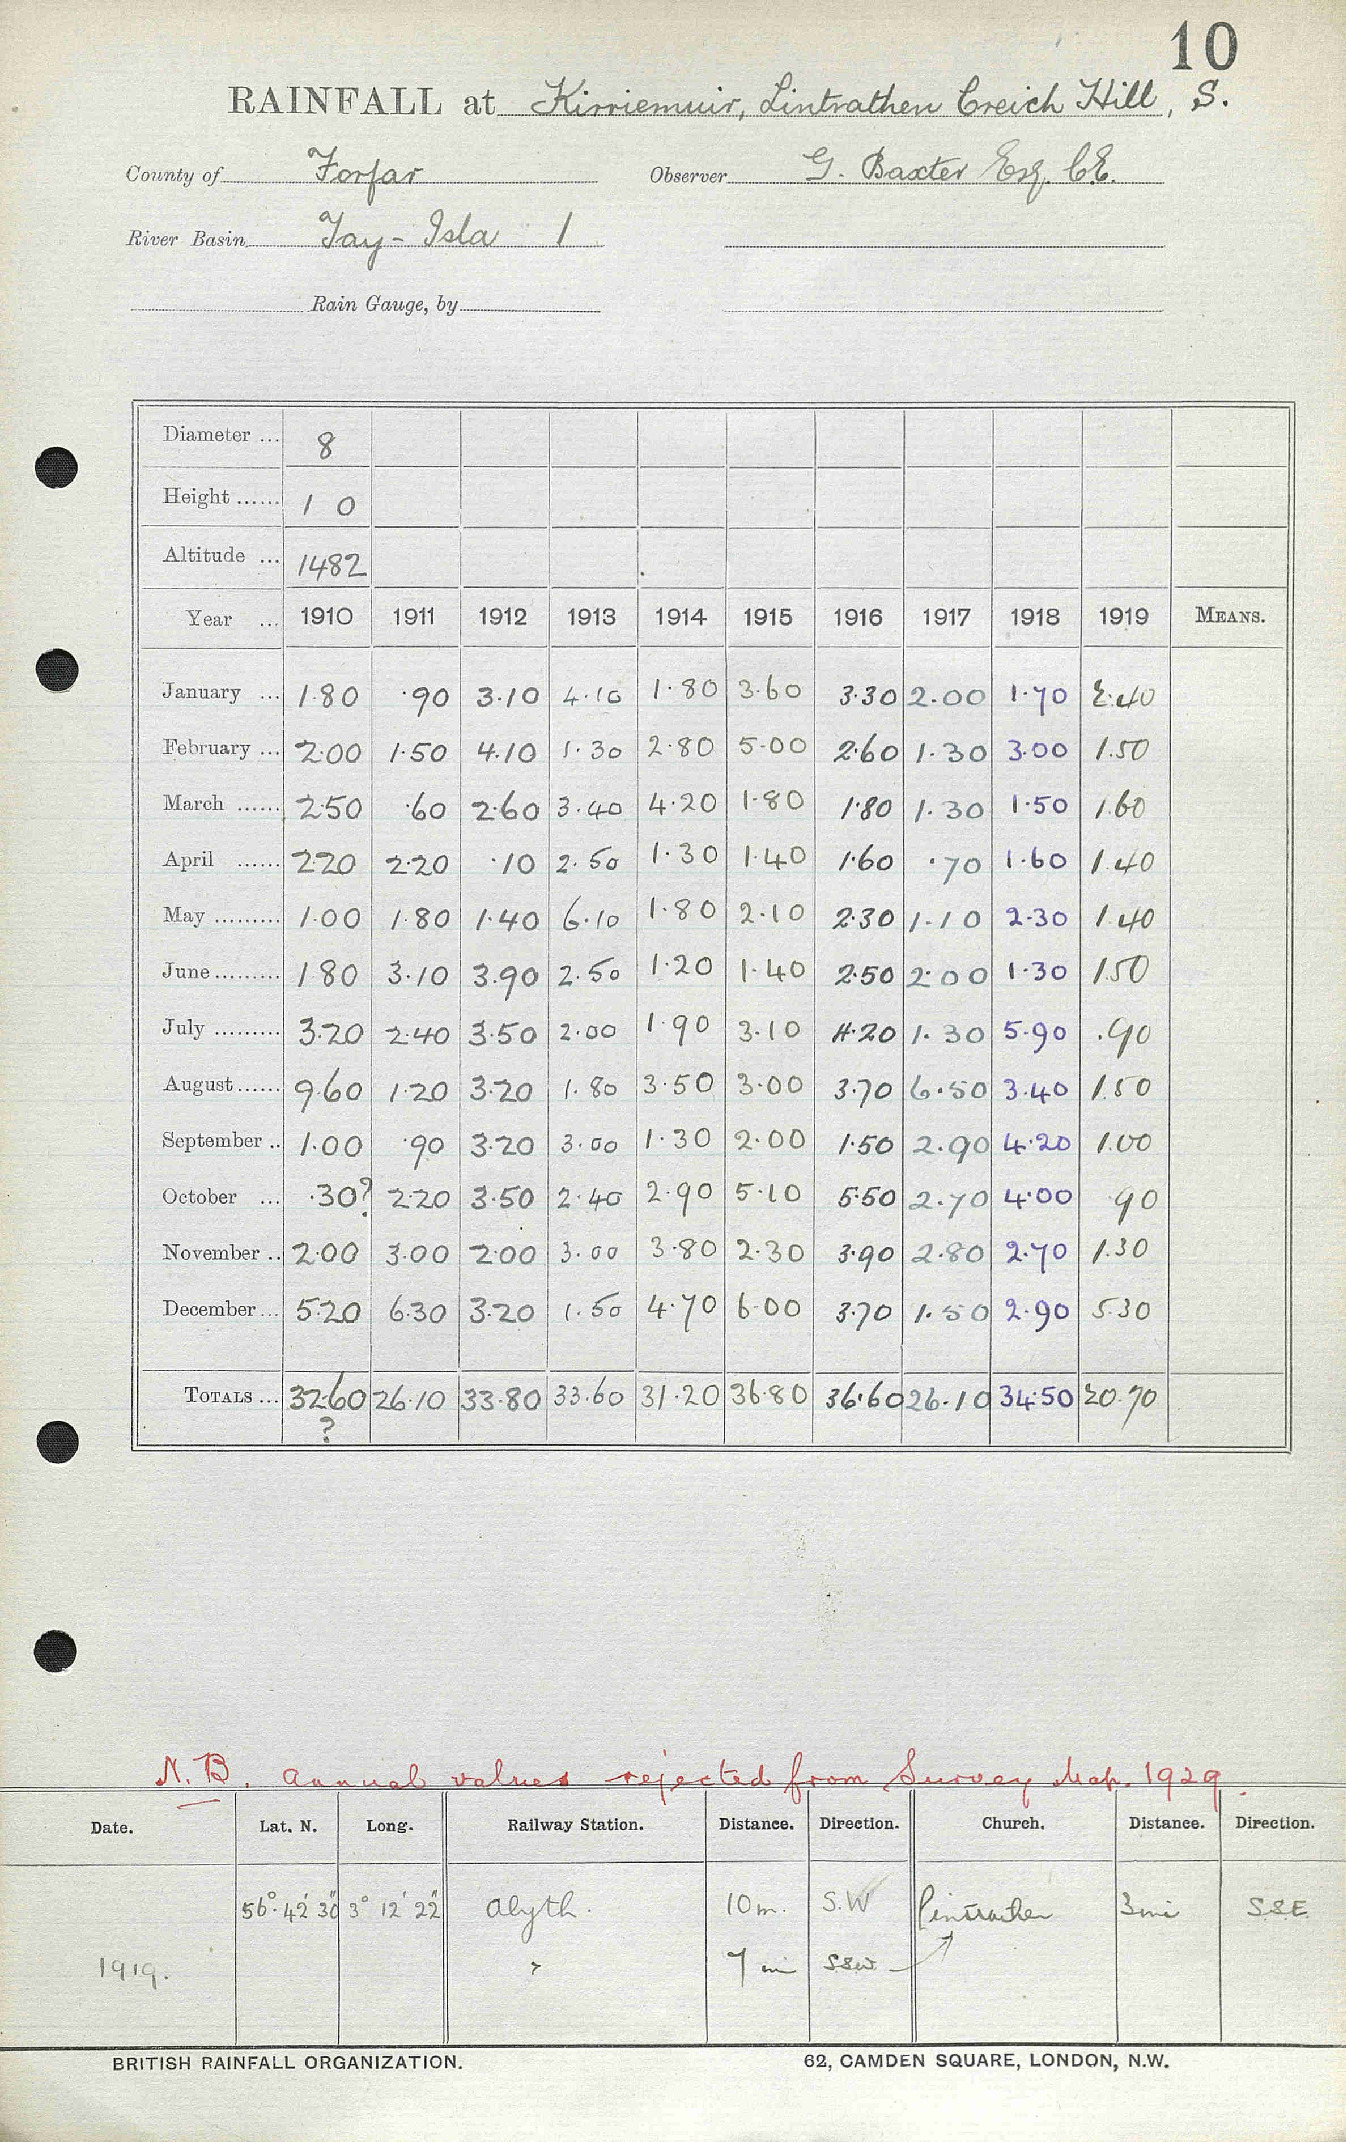 10
RAINFALL at Kirriemuir, Lintrathen Creich Hill, S.
County of Forfar Observer G. Baxter Esq. C.E.
River Basin Tay - Isla 1
Rain Gauge, by
Diameter ... 8
Height ...... 1 0
Altitude ... 1482
Year ... 1910 1911 1912 1913 1914 1915 1916 1917 1918 1919 MEANS.
January ... 1.80 .90 3.10 4.10 1.80 3.60 3.30 2.00 1.70 2.40
February ... 2.00 1.50 4.10 1.30 2.80 5.00 2.60 1.30 3.00 1.50
March ...... 2.50 .60 2.60 3.40 4.20 1.80 1.80 1.30 1.50 1.60
April ...... 2.20 2.20 .10 2.50 1.30 1.40 1.60 .70 1.60 1.40
May ......... 1.00 1.80 1.40 6.10 1.80 2.10 2.30 1.10 2.30 1.40
June ......... 1.80 3.10 3.90 2.50 1.20 1.40 2.50 2.00 1.30 1.50
July ......... 3.20 2.40 3.50 2.00 1.90 3.10 4.20 1.30 5.90 .90
August ...... 9.60 1.20 3.20 1.80 3.50 3.00 3.70 6.50 3.40 1.50
September .. 1.00 .90 3.20 3.00 1.30 2.00 1.50 2.90 4.20 1.00
October ... .30? 2.20 3.50 2.40 2.90 5.10 5.50 2.70 4.00 .90
November .. 2.00 3.00 2.00 3.00 3.80 2.30 3.90 2.80 2.70 1.30
December ... 5.20 6.30 3.20 1.50 4.70 6.00 3.70 1.50 2.90 5.30
TOTALS ... 32.60 26.10 33.80 33.60 31.20 36.80 36.60 26.10 34.50 20.70
?
N.B. Annual values rejected from Survey Map. 1929.
Date. Lat. N. Long. Railway Station. Distance. Direction. Church. Distance. Direction.
56° 42' 30" 3° 12' 22" Alyth. 10 m. S.W Lintrathen 3 mi SSE
1919. " 7 mi SSW
BRITISH RAINFALL ORGANIZATION. 62, CAMDEN SQUARE, LONDON, N.W.